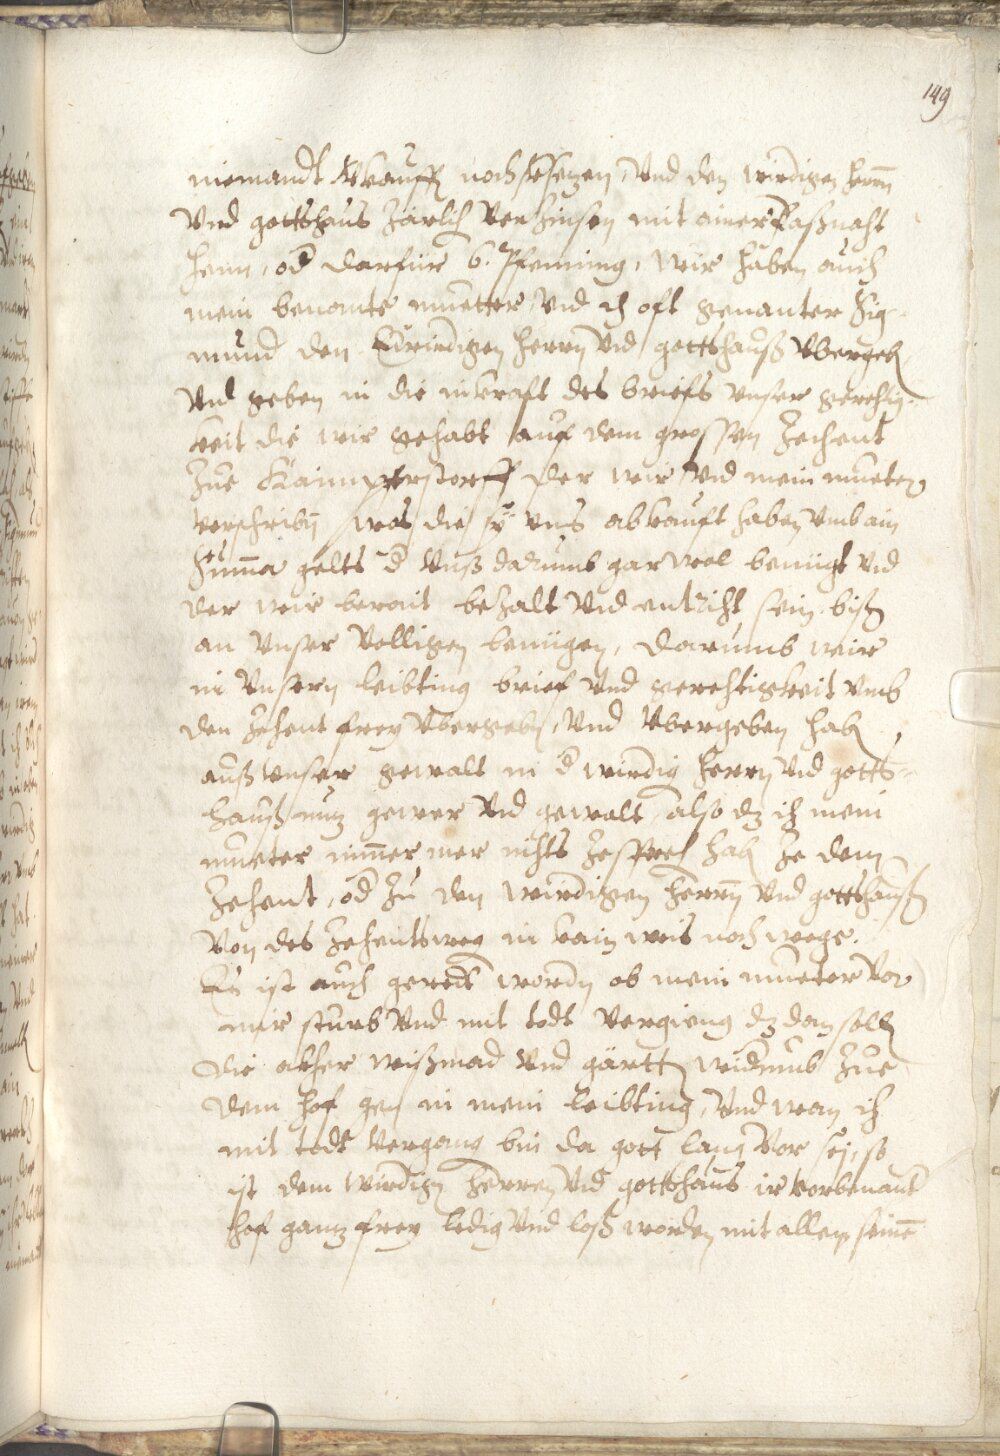 149
niemandt verkauffen noch versezen, Vnd den wirdigen herrn
Vnd gottshaus Järlich Verzinsen mit ainer Vaßnacht
henn, od darfür 6. Pfenning, Wir haben auch
mein benante mueter Vnd ich oft genanter Sig-
mund den Erwirdigen herrn Vnd gottshauß Vbergeben
Vnd geben in die inkraft des briefs Vnser gerechtig-
keit die wir gehabt auf dem grossen Zechent
zue der wir Vnd mein mueter
verschriben was die sy Vns abkauft haben Vmb ain
Summa gelts d Vnß darumb gar wol benüegt Vnd
der wir berait bezalt Vnd entricht sein biß
an Vnser Volligen benüegen, Darumb wir
in Vnsern leibting brief Vnd gerechtigkeit Vmb
den Zehent frey Vbergeben, Vnd Vbergeben haben
auß Vnser gewalt in d wirdig herrn Vnd gotts-
hauß nuz gewer Vnd gewalt, also dz ich mein
mueter nimer mer nichts Zesprech hab Ze dem
Zehent, od Zu den Wirdigen herrn Vnd gottshauß
Von des Zehentsweg in kain weis noch wege.
Es ist auch geredt worden ob mein mueter Vor
mir sturb Vnd mit todt Vergieng dz dan soll
die akher wißmad Vnd gärtt widrumb Zue
dem hof gen in mein leibting, Vnd wan ich
mit todt Vergang bin da gott lang Vor sej, so
ist dem Wirdigen herren Vnd gottshaus ir Vorbenant
hof ganz frey ledig Vnd loß worden mit allen seinen